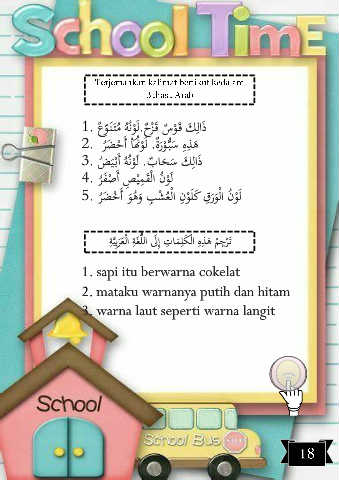 School Time
Terjemahkan kalimat berikut kedalam
Bahasa Arab
1. ذَالِكَ قَوْسُ قَزْحٍ.لَوْنُهُ مُتَنَوِّعٌ
2. هَذِهِ سَبُّوْرَةٌ. لَوْنُهَا أَخْضَرُ
3. ذَالِكَ سَحَابٌ. لَوْنُهُ أَبْيَضُ
4. لَوْنُ الْقَمِيْصِ أَصْفَرُ
5. لَوْنُ الْوَرَقِ كَلَوْنِ الْعُشْبِ وَهُوَ أَخْضَرُ
تَرْجِمْ هَذِهِ الْكَلِمَاتِ إِلَى اللُّغَةِ الْعَرَبِيَّةِ
1. sapi itu berwarna cokelat
2. mataku warnanya putih dan hitam
3. warna laut seperti warna langit
School
School Bus
18